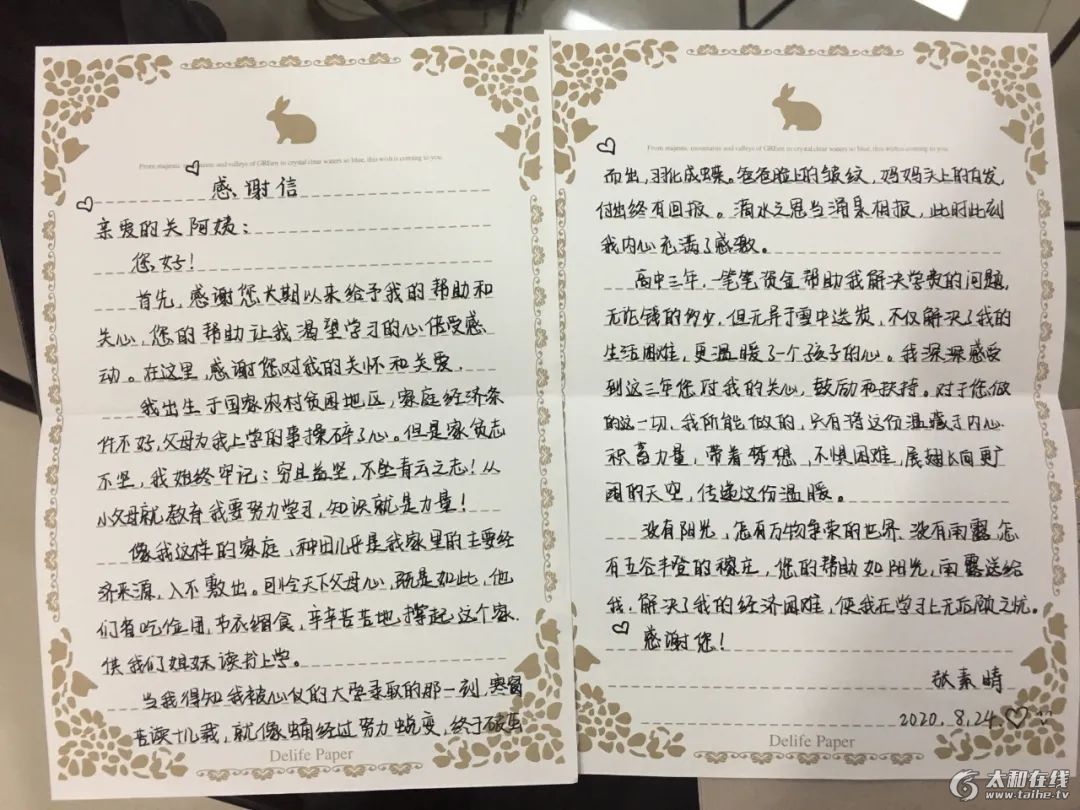 From majestic mountains and valleys of GREen to crystal clear waters so blue, this wish is coming to you.
感谢信
亲爱的关阿姨：
您好！
首先，感谢您长期以来给予我的帮助和
关心，您的帮助让我渴望学习的心倍受感
动。在这里，感谢您对我的关怀和关爱。
我出生于国家农村贫困地区，家庭经济条
件不好，父母为我上学的事操碎了心。但是家贫志
不坚，我始终牢记：穷且益坚，不坠青云之志！从
小父母就教育我要努力学习，知识就是力量！
像我这样的家庭，种田几乎是我家里的主要经
济来源，入不敷出。可怜天下父母心，既是如此，他
们省吃俭用，节衣缩食，辛辛苦苦地撑起这个家，
供我们姐妹读书上学。
当我得知我被心仪的大学录取的那一刻，寒窗
苦读十几载，就像蛹经过努力蜕变，终于破茧
Delife Paper
From majestic mountains and valleys of GREen to crystal clear waters so blue, this wish is coming to you.
而出，羽化成蝶。爸爸脸上的皱纹，妈妈头上的白发，
付出终有回报。滴水之恩当涌泉相报，此时此刻
我内心充满了感激。
高中三年，一笔笔资金帮助我解决学费的问题，
无论钱的多少，但无异于雪中送炭，不仅解决了我的
生活困难，更温暖了一个孩子的心。我深深感受
到这三年您对我的关心，鼓励和扶持。对于您做
的这一切，我所能做的，只有将这份温藏于内心
积蓄力量，带着梦想，不惧困难，展翅飞向更广
阔的天空，传递这份温暖。
没有阳光，怎有万物争荣的世界，没有雨露，怎
有五谷丰登的稼庄，您的帮助如阳光，雨露送给
我，解决了我的经济困难，使我在学习上无后顾之忧。
感谢您！
张素晴
2020.8.24.
Delife Paper
太和在线
www.taihe.tv